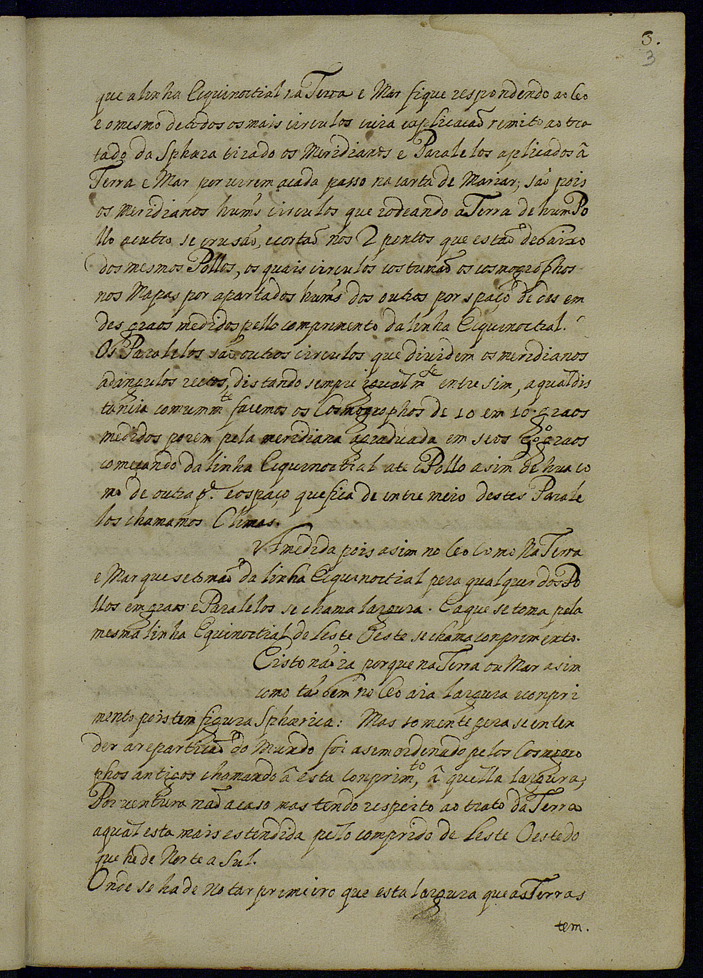 3.
3
que a linha Equinoctial na Terra e Mar fique respondendo ao Ceo
e o mesmo de todos os mais circulos cuia explicacaõ remito ao tra
tado da Sphæra tirado os Meridianos e Paralelos aplicados â
Terra e Mar por virem acada passo na carta de Marear; saõ pois
os Meridianos huns circulos que rodeando a Terra de hum Po
llo a outro, se crusaõ, e cortaõ nos 2 pontos que estaõ debaixo
dos mesmos Pollos, os quais circulos costumaõ os cosmogrophos
nos Mapas por apartados huns dos outros por spaço de des em
des graos medidos pello comprimento da linha Equinoctial.
Os Paralelos saõ outros circulos que dividem os meridianos
a angulos rectos, distando sempre igualm.te entre sim, a qual dis
tançia comumm.te fasemos os Cosmogrophos de 10 em 10 graos
medidos porem pela meridiana agraduada em seos graos
comesando da linha Equinoctial ate o Pollo asim de hua co
mo de outra p.te e o spaço que fica de entre meio destes Parale
los chamamos Climas.
A medida pois asim no Ceo como na Terra
e Mar que se toma da linha Equinoctial pera qualquer dos Po
llos em graos e Paralelos se chama largura. E a que se toma pela
mesma linha Equinoctial de leste Oeste se chama conprimento.
E isto naõ porque na Terra ou Mar asim
como taõ bem no Ceo aia largura e conpri
mento pois tem figura Sphærica: Mas somente pera se enten
der a reparticaõ do Mundo foi asim ordenado pelos Cosmogro
phos antigos chamando â esta conprim.to, â quella largura;
Por ventura naõ a caso mas tendo respeito ao trato da Terra
a qual esta mais estendida pelo comprido de leste Oeste do
que he de Norte a Sul.
Onde se ha de notar primeiro que esta largura que as Terras
tem.